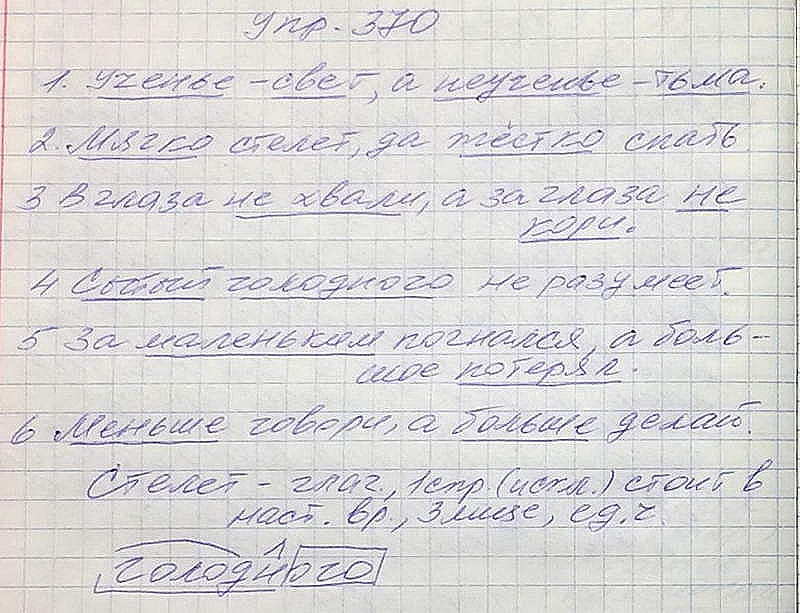 Упр. 370
1. Ученье - свет, а неученье - тьма.
2. Мягко стелет, да жёстко спать
3 В глаза не хвали, а за глаза не
кори.
4 Сытый голодного не разумеет.
5 За маленьком погнался, а боль-
шое потерял.
6 Меньше говори, а больше делай.
Стелет - глаг., 1 спр. (искл.) стоит в
наст. вр., 3 лице, ед. ч.
голодного